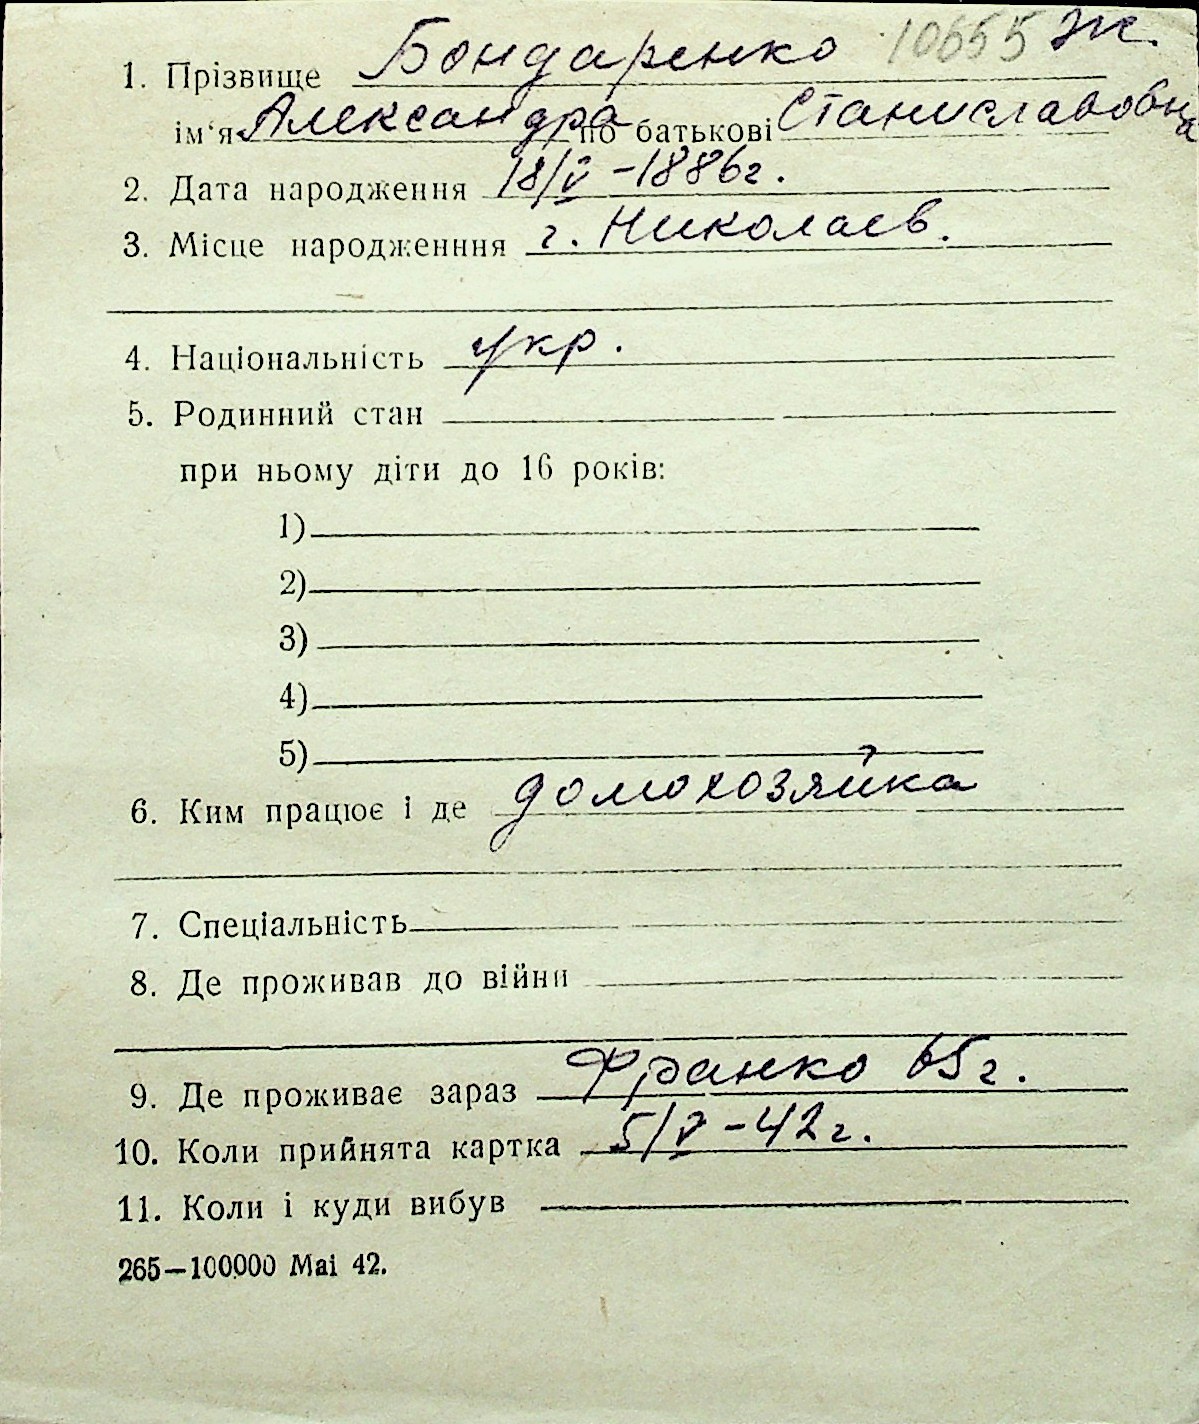 1. Прізвище Бондаренко 10655 Ж.
ім'я Александра по батькові Станиславовна
2. Дата народження 18/V -1886г.
3. Місце народженння г. Николаев.
4. Національність укр.
5. Родинний стан
при ньому діти до 16 років:
1)
2)
3)
4)
5)
6. Ким працює і де домохозяйка
7. Спеціальність
8. Де проживав до війни
9. Де проживає зараз Франко 65г.
10. Коли прийнята картка 5/V -42г.
11. Коли і куди вибув
265—100000 Mai 42.